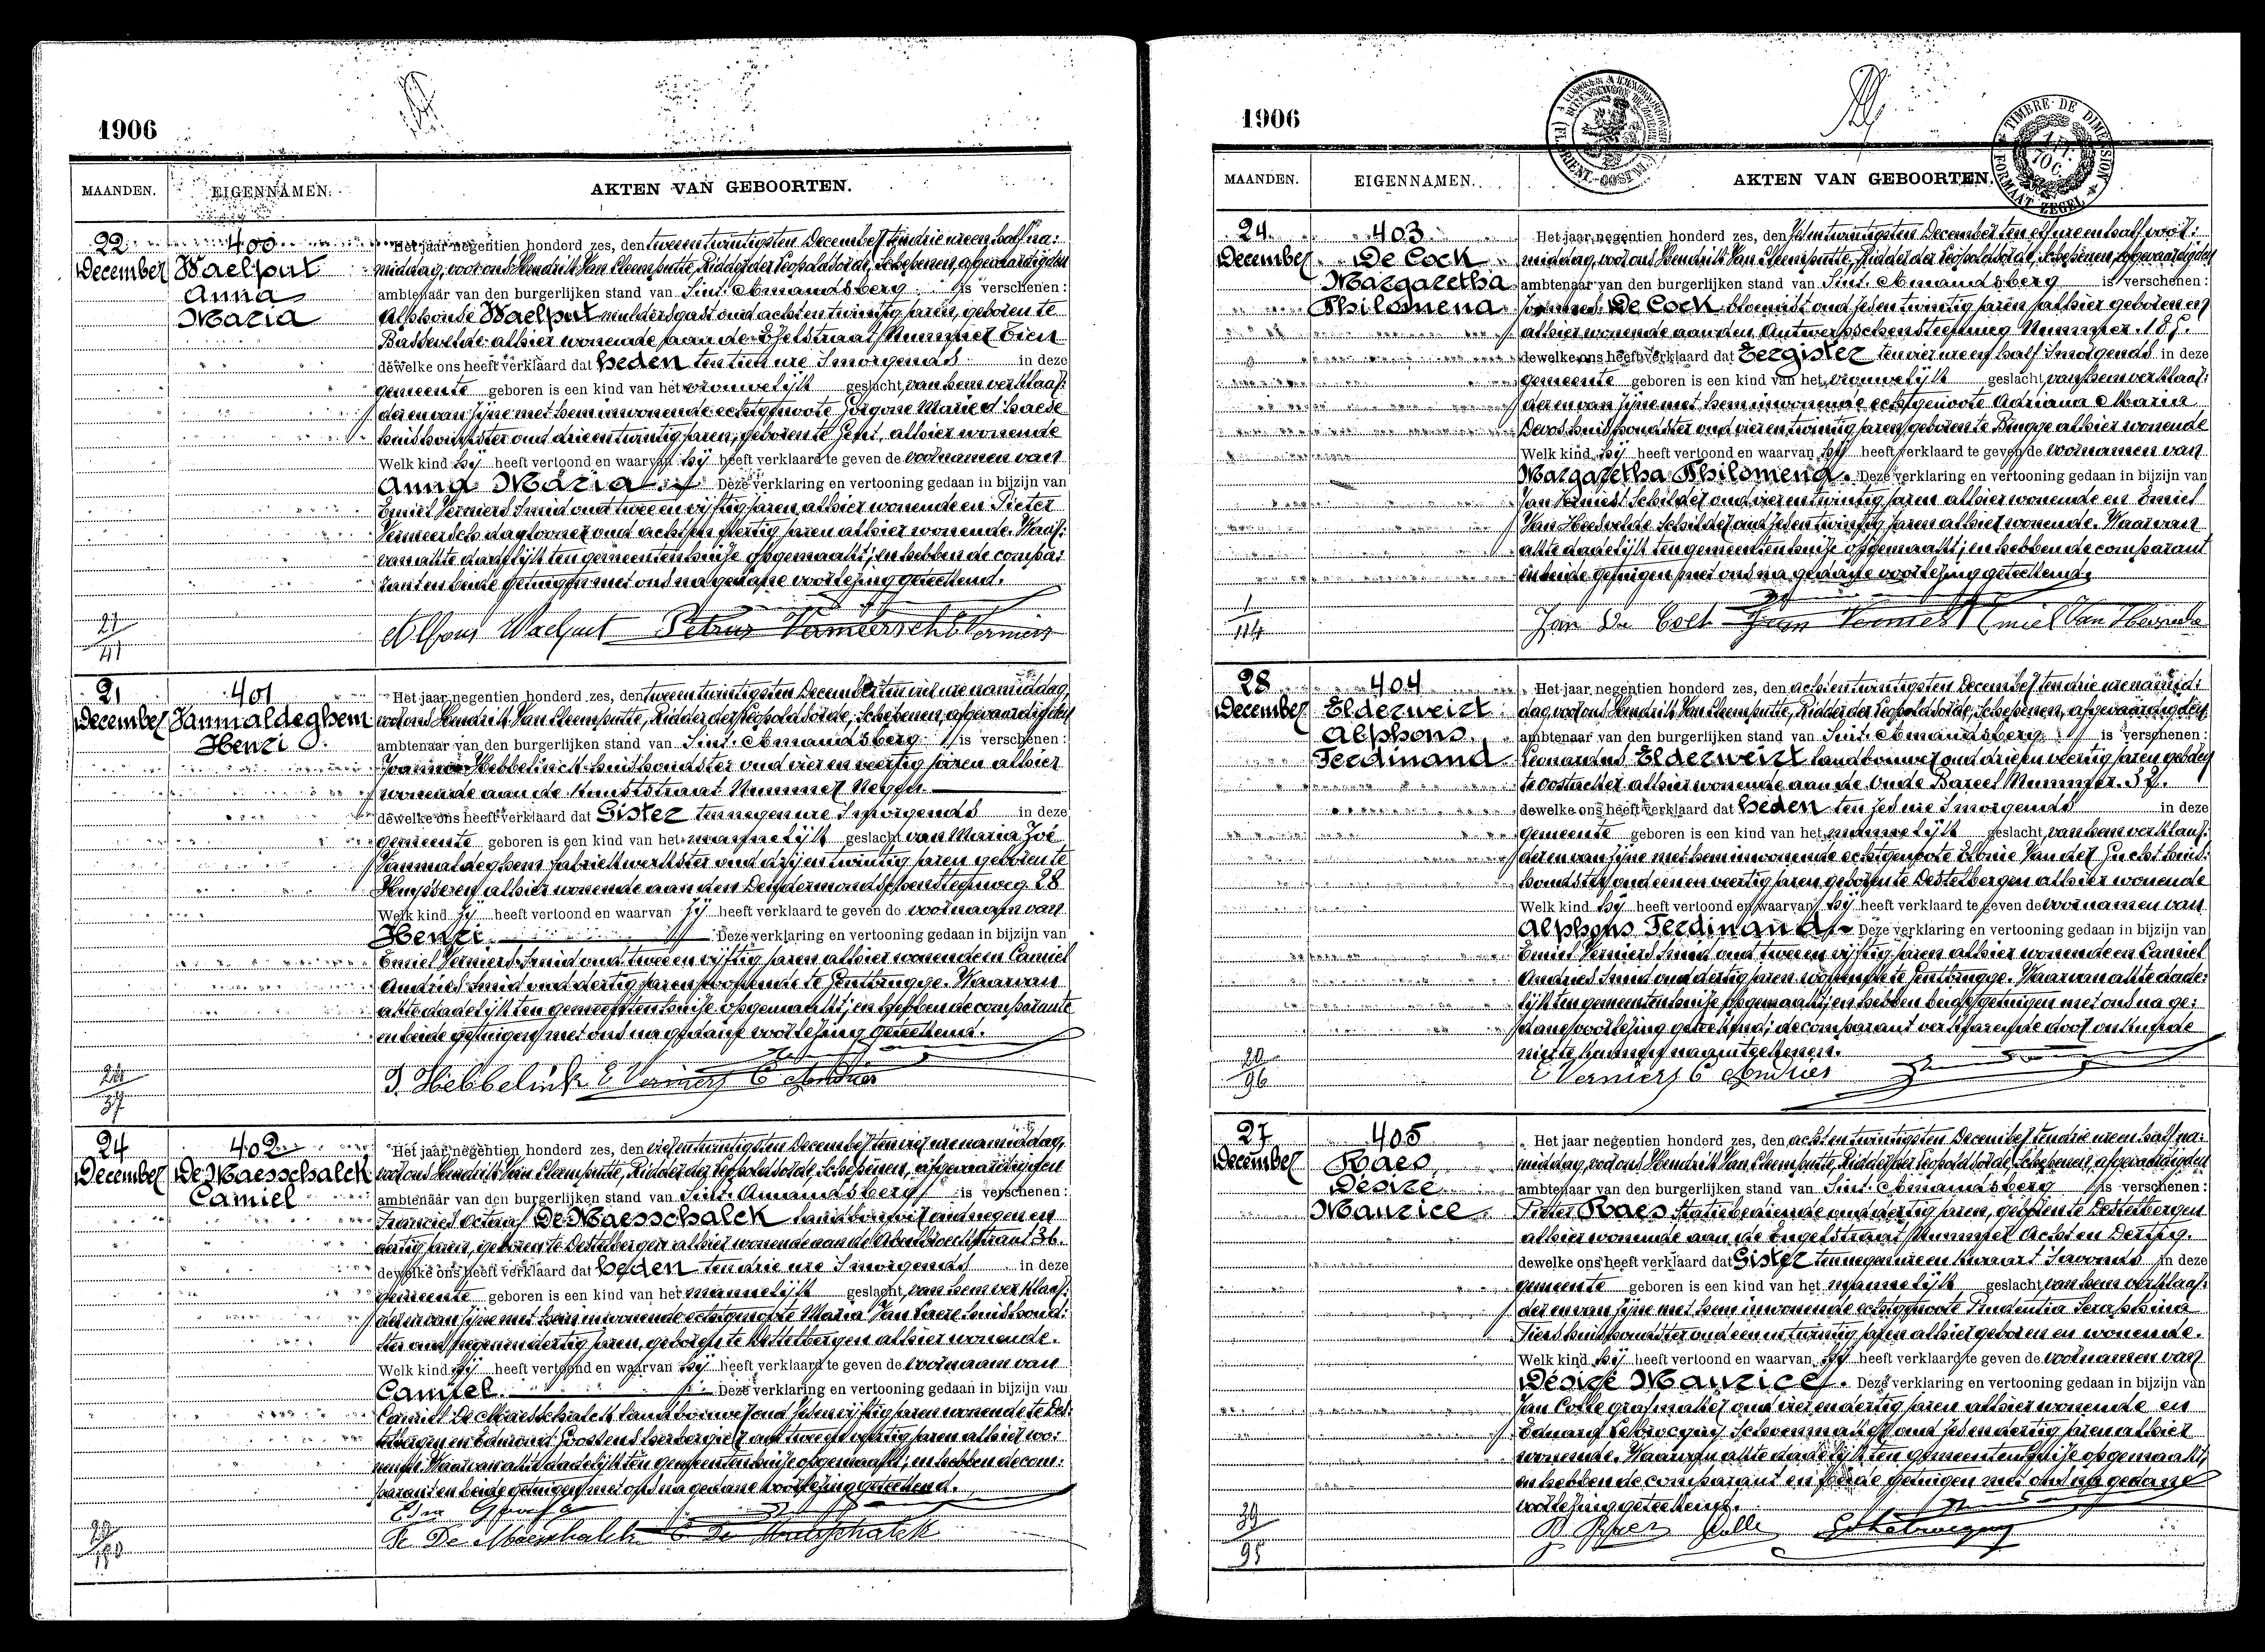 1906
MAANDEN. EIGENNAMEN. AKTEN VAN GEBOORTEN.
22 December
400
Waelput
Anna
Maria
Het jaar negentien honderd zes, den tweeentwintigsten December ten drie ure en half na:
middag, voor ons Hendrik Van Cleemputte, Ridder der Leopoldsorde, Schepenen, afgevaardigden
ambtenaar van den burgerlijken stand van Sint. Amandsberg is verschenen:
Alphonse Waelput muldersgast oud achtentwintig jaren, geboren te
Bassevelde alhier wonende aan de straat Nummer Tien
dewelke ons heeft verklaard dat heden ten tien ure 'smorgends in deze
gemeente geboren is een kind van het vrouwelijk geslacht, van hem verklaar:
der en van zijne met hem inwonende echtgenoote Marie d'haese
huishoudster oud drieentwintig jaren, geboren te Gent, alhier wonende
Welk kind hij heeft vertoond en waarvan hij heeft verklaard te geven de voornamen van
Anna Maria. Deze verklaring en vertooning gedaan in bijzijn van
Emiel Verniers Smid oud tweeenvijftig jaren alhier wonende en Pieter
Vermeersch daglooner oud achtenveertig jaren alhier wonende. Waar:
van akte dadelijk ten gemeentenhuize opgemaakt; en hebben de compa:
rant en beide getuigen met ons na gedane voorlezing geteekend.
Alfons Waelput Petrus Vermeersch E Verniers
27
41
21 December
401
Vanmaldeghem
Henri
Het jaar negentien honderd zes, den tweeentwintigsten December ten vier ure namiddag,
voor ons Hendrik Van Cleemputte, Ridder der Leopoldsorde, Schepenen, afgevaardigden
ambtenaar van den burgerlijken stand van Sint. Amandsberg is verschenen:
Joanna Hebbelinck huishoudster oud vierenveertig jaren alhier
wonende aan de Kunststraat Nummer Negen
dewelke ons heeft verklaard dat Gister ten negen ure 'smorgends in deze
gemeente geboren is een kind van het mannelijk geslacht, van Maria Zoé
Vanmaldeghem fabriekwerkster oud drijentwintig jaren geboren te
Huysseren alhier wonende aan den Dendermondschensteenweg 28
Welk kind zij heeft vertoond en waarvan zij heeft verklaard te geven de voornaam van
Henri. Deze verklaring en vertooning gedaan in bijzijn van
Emiel Verniers Smid oud tweeenvijftig jaren alhier wonende en Camiel
Andries Smid oud dertig jaren wonende te Gentbrugge. Waarvan
akte dadelijk ten gemeentenhuize opgemaakt; en hebben de comparante
en beide getuigen met ons na gedane voorlezing geteekend.
J. Hebbelinck E Verniers C Andries
37
24 December
402
De Maesschalck
Camiel
Het jaar negentien honderd zes, den vierentwintigsten December ten vier ure namiddag,
voor ons Hendrik Van Cleemputte, Ridder der Leopoldsorde, Schepenen, afgevaardigden
ambtenaar van den burgerlijken stand van Sint. Amandsberg is verschenen:
Francies Octaaf De Maesschalck landbouwer oud negenen
dertig jaren, geboren te Destelbergen alhier wonende aan de straat 36.
dewelke ons heeft verklaard dat heden ten drie ure 'smorgends in deze
gemeente geboren is een kind van het mannelijk geslacht, van hem verklaar:
der en van zijne met hem inwonende echtgenoote Maria Van Laere huishoud:
ster oud negenendertig jaren, geboren te Destelbergen alhier wonende.
Welk kind hij heeft vertoond en waarvan hij heeft verklaard te geven de voornaam van
Camiel. Deze verklaring en vertooning gedaan in bijzijn van
Camiel De Maesschalck landbouwer oud zesenvijftig jaren wonende te Des:
telbergen en Edmond Goossens herbergier oud tweeenveertig jaren alhier wo:
nende. Waarvan akte dadelijk ten gemeentenhuize opgemaakt; en hebben de com:
parant en beide getuigen met ons na gedane voorlezing geteekend.
De Maesschalck C De Maesschalck
1906
MAANDEN. EIGENNAMEN. AKTEN VAN GEBOORTEN.
TIMBRE DE DIMENSION
FORMAAT ZEGEL
24 December
403
De Cock
Margaretha
Philomena
Het jaar negentien honderd zes, den zesentwintigsten December ten elf ure en half voor:
middag, voor ons Hendrik Van Cleemputte, Ridder der Leopoldsorde, Schepenen, afgevaardigden
ambtenaar van den burgerlijken stand van Sint. Amandsberg is verschenen:
Joannes De Cock bloemist oud zesentwintig jaren alhier geboren en
alhier wonende aan den Antwerpschensteenweg Nummer. 185.
dewelke ons heeft verklaard dat Eergister ten vier ure en half 'smorgends in deze
gemeente geboren is een kind van het vrouwelijk geslacht, van hem verklaar:
der en van zijne met hem inwonende echtgenoote Adriana Maria
Devos huishoudster oud vierentwintig jaren, geboren te Brugge alhier wonende
Welk kind hij heeft vertoond en waarvan hij heeft verklaard te geven de voornamen van
Margaretha Philomena. Deze verklaring en vertooning gedaan in bijzijn van
Jan Vermest Schilder oud vierentwintig jaren alhier wonende en Emiel
Van Heesvelde Schilder oud zesentwintig jaren alhier wonende. Waarvan
akte dadelijk ten gemeentenhuize opgemaakt; en hebben de comparant
en beide getuigen met ons na gedane voorlezing geteekend.
Jan De Cock
1
114
28 December
404
Elderweirt
Alphons
Ferdinand
Het jaar negentien honderd zes, den achtentwintigsten December ten drie ure namid:
dag, voor ons Hendrik Van Cleemputte, Ridder der Leopoldsorde, Schepenen, afgevaardigden
ambtenaar van den burgerlijken stand van Sint. Amandsberg is verschenen:
Leonardus Elderweirt landbouwer oud drieenveertig jaren geboren
te Oostacker alhier wonende aan de Oude Bareel Nummer. 37.
dewelke ons heeft verklaard dat heden ten zes ure 'smorgends in deze
gemeente geboren is een kind van het mannelijk geslacht, van hem verklaar:
der en van zijne met hem inwonende echtgenoote Leonie Van der Gucht huis:
houdster oud eenenveertig jaren geboren te Destelbergen alhier wonende
Welk kind hij heeft vertoond en waarvan hij heeft verklaard te geven de voornamen van
Alphons Ferdinand. Deze verklaring en vertooning gedaan in bijzijn van
Emiel Verniers Smid oud tweeenvijftig jaren alhier wonende en Camiel
Andries Smid oud dertig jaren wonende te Gentbrugge. Waarvan akte dade:
lijk ten gemeentenhuize opgemaakt; en hebben beide getuigen met ons na ge:
dane voorlezing geteekend; de comparant verklarende door onkunde
niet te kunnen naamteekenen.
E Verniers C Andries
20
96
27 December
405
Raes
Désiré
Maurice
Het jaar negentien honderd zes, den achtentwintigsten December ten drie ure en half na:
middag, voor ons Hendrik Van Cleemputte, Ridder der Leopoldsorde, Schepenen, afgevaardigden
ambtenaar van den burgerlijken stand van Sint. Amandsberg is verschenen:
Pieter Raes Statiebediende oud dertig jaren, geboren te Destelbergen
alhier wonende aan de Engelstraat Nummer Acht en Dertig.
dewelke ons heeft verklaard dat Gister ten negen ure en kwaart 'savonds in deze
gemeente geboren is een kind van het mannelijk geslacht, van hem verklaar:
der en van zijne met hem inwonende echtgenoote Prudentia Seraphina
Siers huishoudster oud eenentwintig jaren alhier geboren en wonende.
Welk kind hij heeft vertoond en waarvan hij heeft verklaard te geven de voornamen van
Désiré Maurice. Deze verklaring en vertooning gedaan in bijzijn van
Jan Colle grafmaker oud vierendertig jaren alhier wonende en
Eduard Schoenmaker oud zesendertig jaren alhier
wonende. Waarvan akte dadelijk ten gemeentenhuize opgemaakt,
en hebben de comparant en beide getuigen met ons na gedane
voorlezing geteekend.
P Raes J Colle
39
95